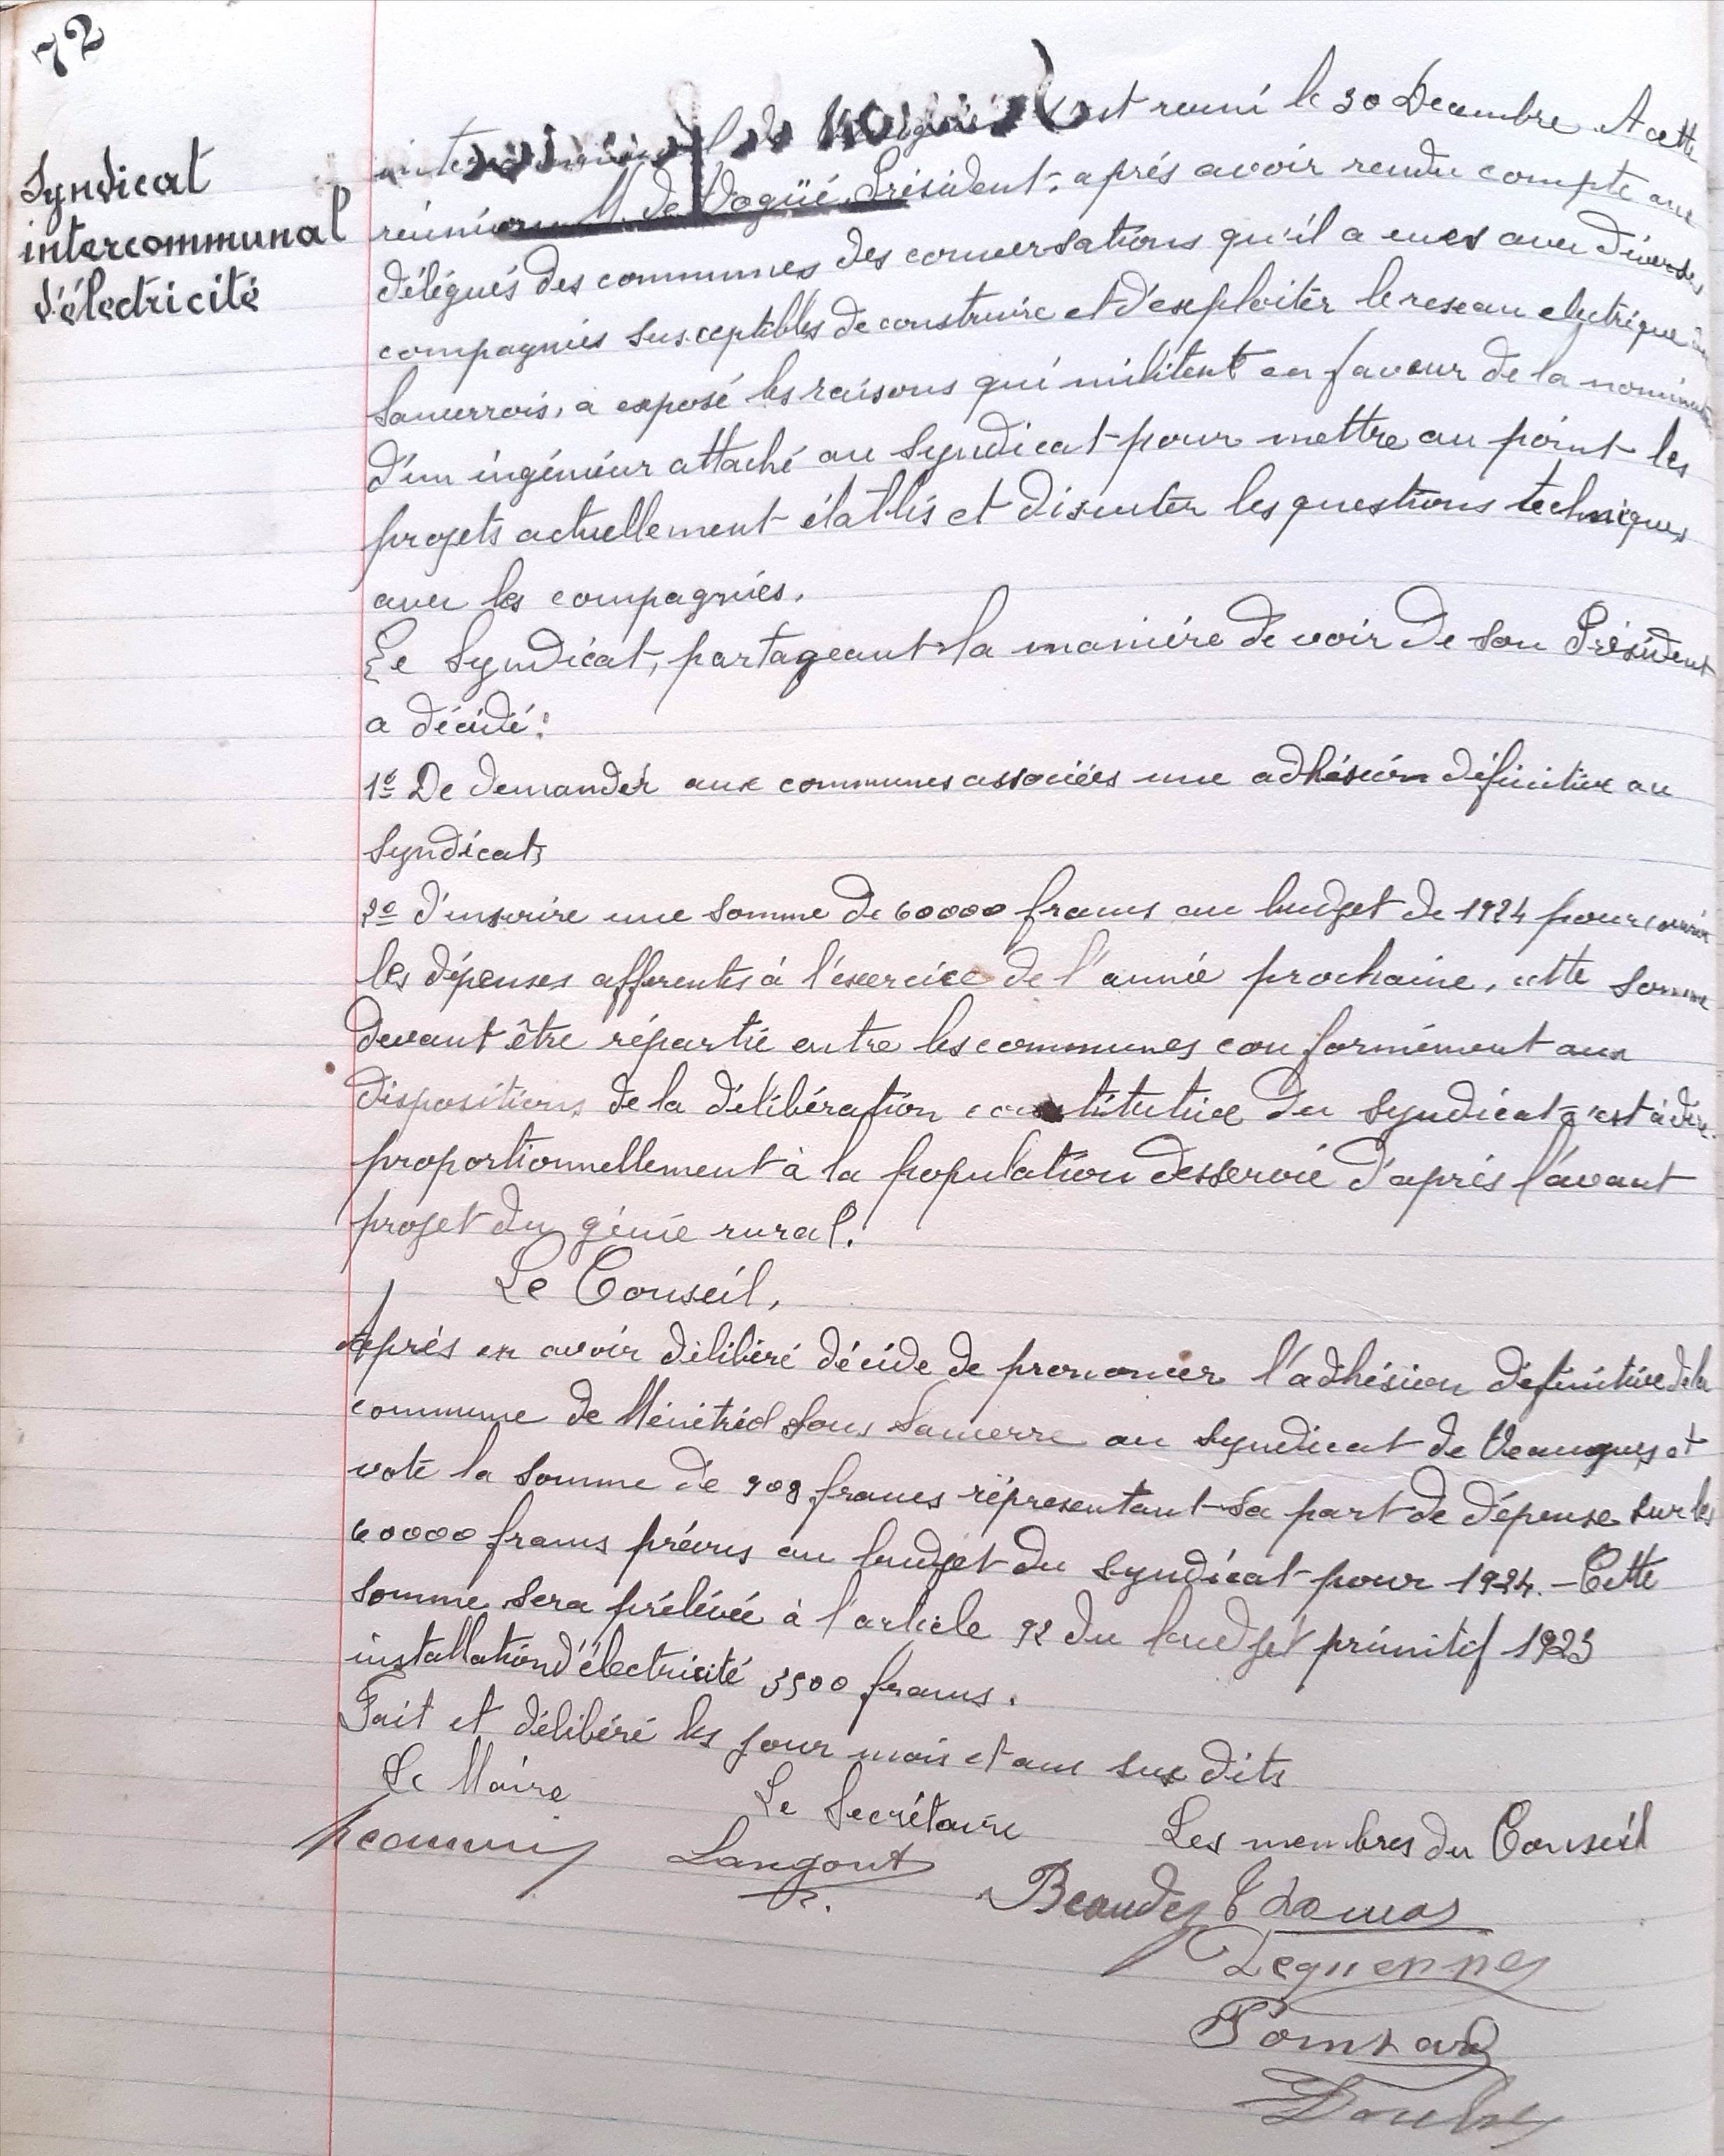 72
Syndicat
intercommunal
d'électricité
est reuni le 30 Decembre A cette
réunion M. de Vogüé, Président, après avoir rendu compte aux
délégués des communes des conversations qu'il a eues avec diverses
compagnies susceptibles de construire et d'exploiter le reseau electrique du
Sancerrois, a exposé les raisons qui militent en faveur de la nomination
d'un ingénieur attaché au Syndicat pour mettre au point les
projets actuellement établis et discuter les questions techniques
avec les compagnies.
Le Syndicat, partageant la manière de voir de son Président
a décidé:
1º De demander aux communes associées une adhésion définitive au
Syndicat;
2º d'inscrire une somme de 60000 francs au budget de 1924 pour couvrir
les dépenses afferentes à l'exercice de l'année prochaine, cette somme
devant être répartie entre les communes conformément aux
dispositions de la délibération constitutive du Syndicat c'est à dire
proportionnellement à la population desservie d'après l'avant
projet du génie rural.
Le Conseil,
Après en avoir délibéré décide de prononcer l'adhésion définitive de la
commune de Ménétréol sous Sancerre au Syndicat de Veaugues et
vote la somme de 908 francs représentant sa part de dépense sur les
60000 francs prévus au budget du Syndicat pour 1924. - Cette
somme sera prélevée à l'article 92 du budget primitif 1923
installation d'électricité 3500 francs.
Fait et délibéré les jour mois et an sus dits
Le Maire
Le Secrétaire
Les membres du Conseil
Langout